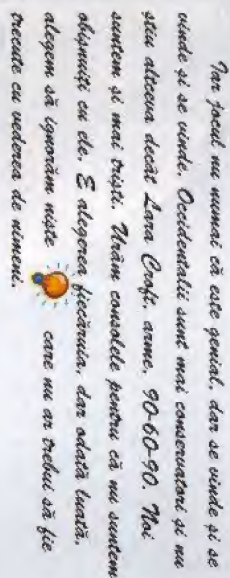 Iar jocul nu numai că este genial, dar se vinde şi se
vinde şi se vinde. Occidentalii sunt mai conservatori şi nu
ştiu altceva decât Lara Croft, arme, 90-60-90. Noi
suntem şi mai trişti. Urâm consolele pentru că nu suntem
obişnuiţi cu ele. E alegerea fiecăruia, dar odată luată,
alegem să ignorăm nişte care nu ar trebui să fie
trecute cu vederea de nimeni.